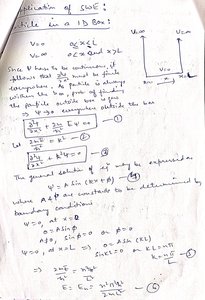 plication of SWE:
ticle in a 1D Box:
V=0 0<x<L
V=∞ 0<x and x>L
V=∞ V=∞
V=0
x=L
Since Ψ has to be continuous, it
follows that ∂²Ψ/∂x² must be finite
everywhere. As particle is always
within the box, prob. of finding
the particle outside box is zero
⇒ Ψ→0 everywhere outside the box
∂²Ψ/∂x² + 2m/ħ² EΨ = 0 —①
Let 2mE/ħ² = K² —②
∂²Ψ/∂x² + K²Ψ = 0 —③
The general solution of eqⁿ may be expressed as
Ψ = A sin (Kx + φ) —④
where A & φ are constants to be determined by
boundary conditions:
Ψ=0, at x=0
0 = A sin φ
A≠0, sin φ = 0 or φ=0
Ψ=0, at x=L ⇒ 0 = A sin (KL)
sin KL = 0 or KL = nπ
K = nπ/L —⑤
⇒ 2mE/ħ² = n²π²/L²
E = Eₙ = n²π²ħ²/2mL² —⑥